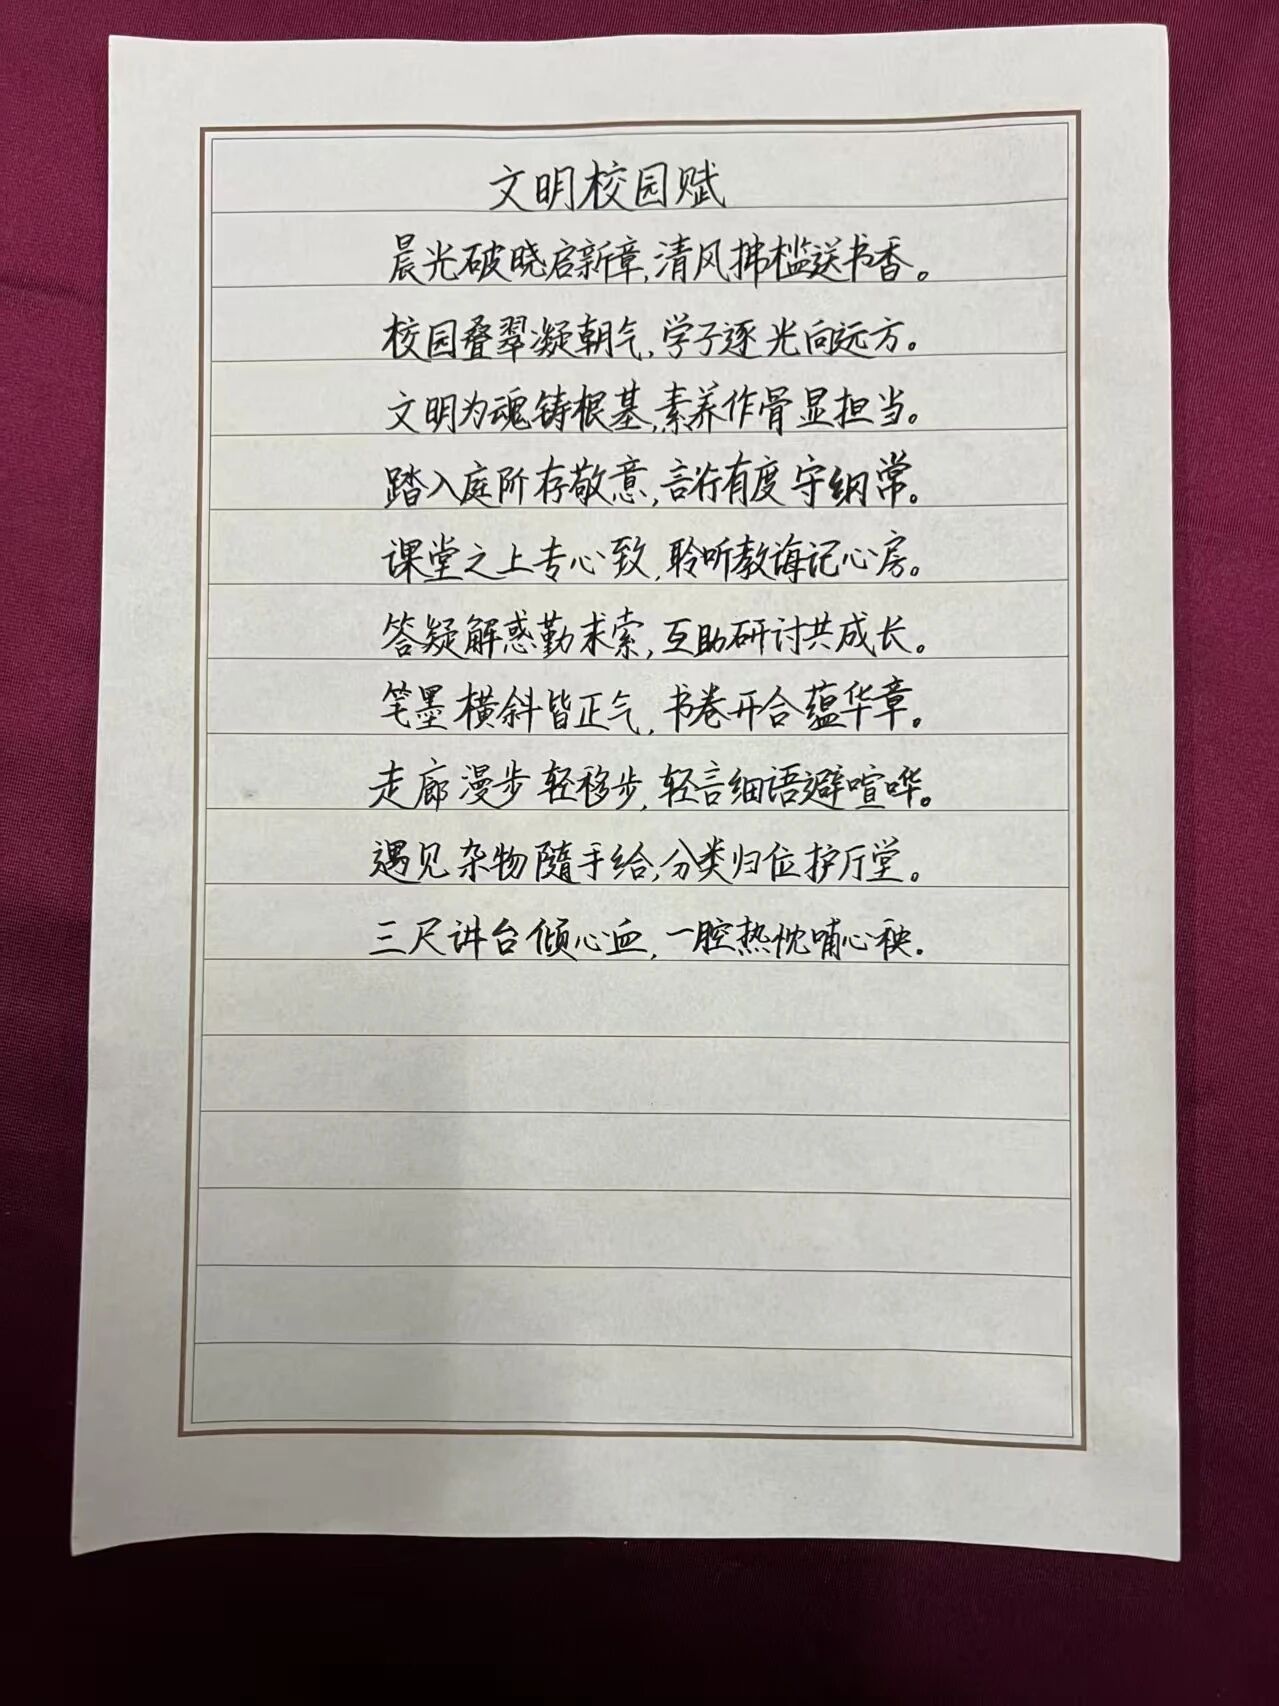 文明校园赋
晨光破晓启新章,清风拂槛送书香。
校园叠翠凝朝气,学子逐光向远方。
文明为魂铸根基,素养作骨显担当。
踏入庭阶存敬意,言行有度守纲常。
课堂之上专心致,聆听教诲记心房。
答疑解惑勤求索,互助研讨共成长。
笔墨横斜皆正气,书卷开合蕴华章。
走廊漫步轻移步,轻言细语避喧哗。
遇见杂物随手给,分类归位护厅堂。
三尺讲台倾心血,一腔热忱哺心秧.